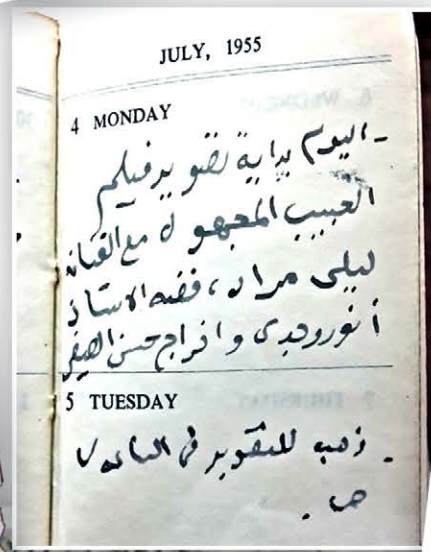 JULY, 1955
4 MONDAY
- اليوم بداية تصوير فيلم
الحبيب المجهول مع الفنانة
ليلى مراد، قصة الاستاذ
أنور وجدى واخراج حسن الصيفى
5 TUESDAY
- ذهب للتصوير فى الساعه ٧
ص.